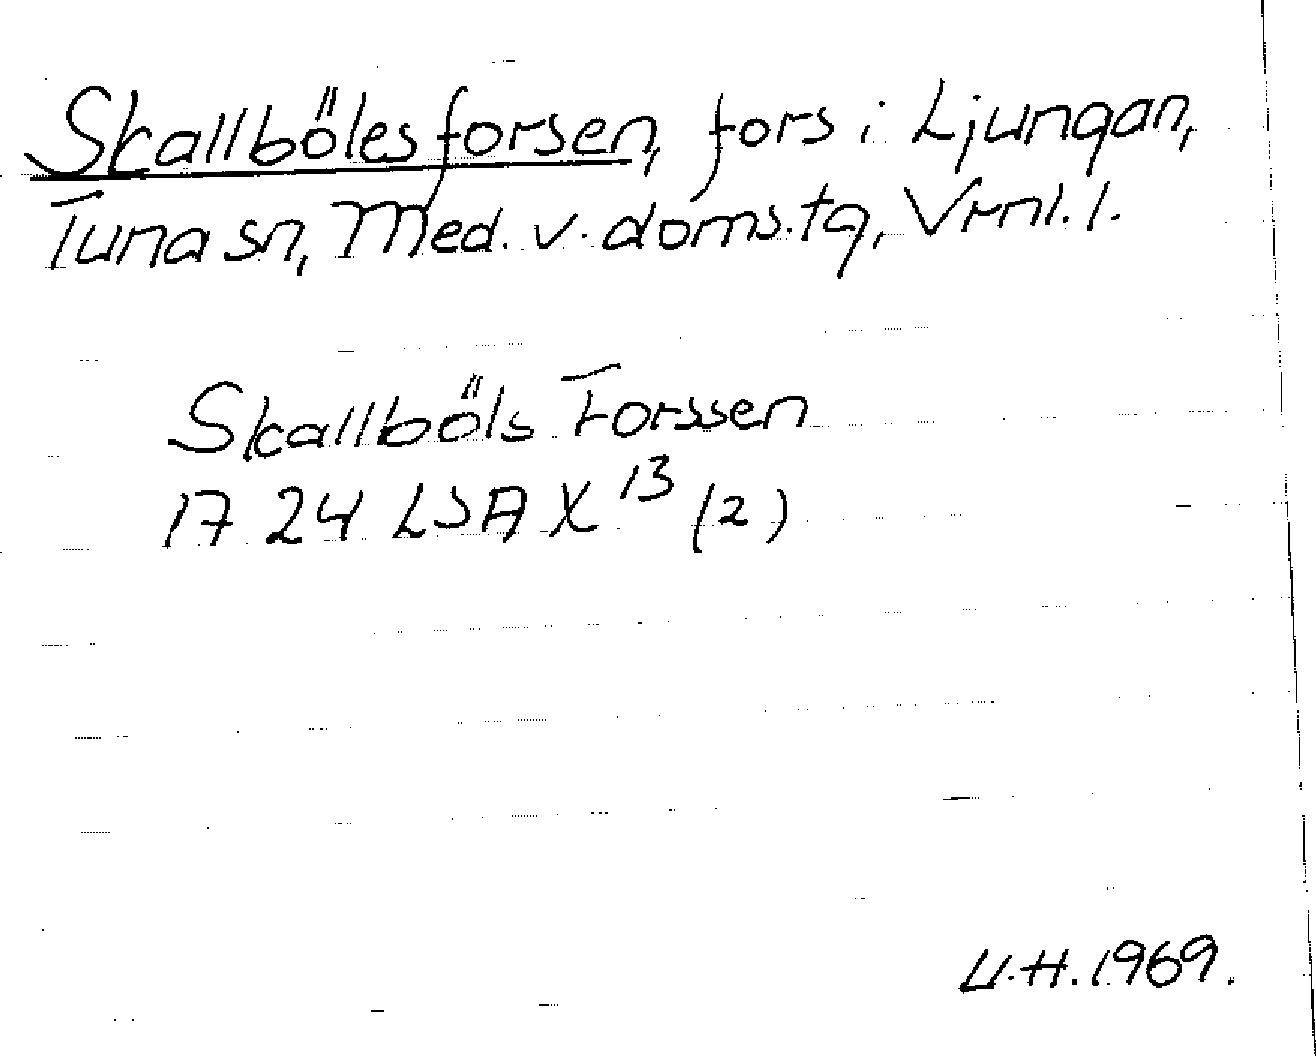 Skallbölesforsen, fors i Ljungan,
Tuna sn, Med. v. doms.tg, Vrnl. l.
Skallböls Forssen
1724 LSA X 13 (2)
U.H. 1969.